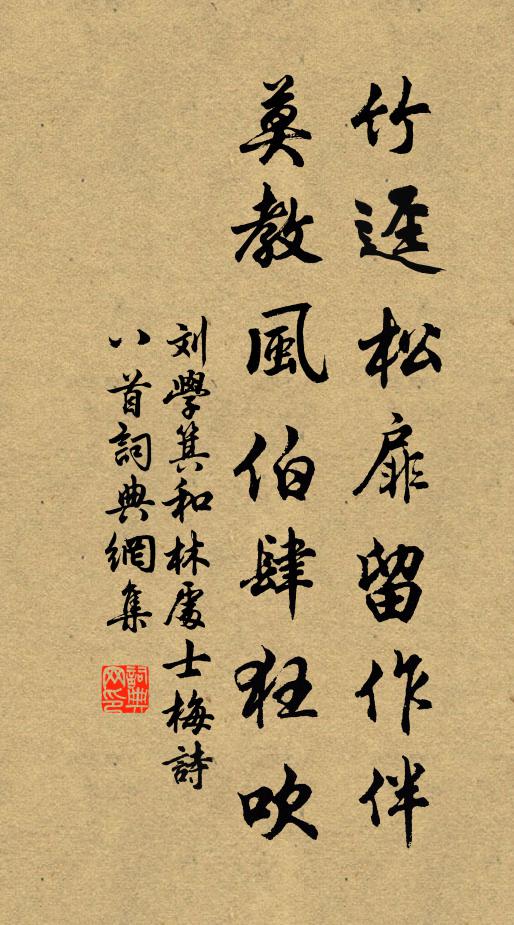 竹逕松扉留作伴
莫教風伯肆狂吹
刘學箕和林處士梅詩
八首詞典網集
詞典网印